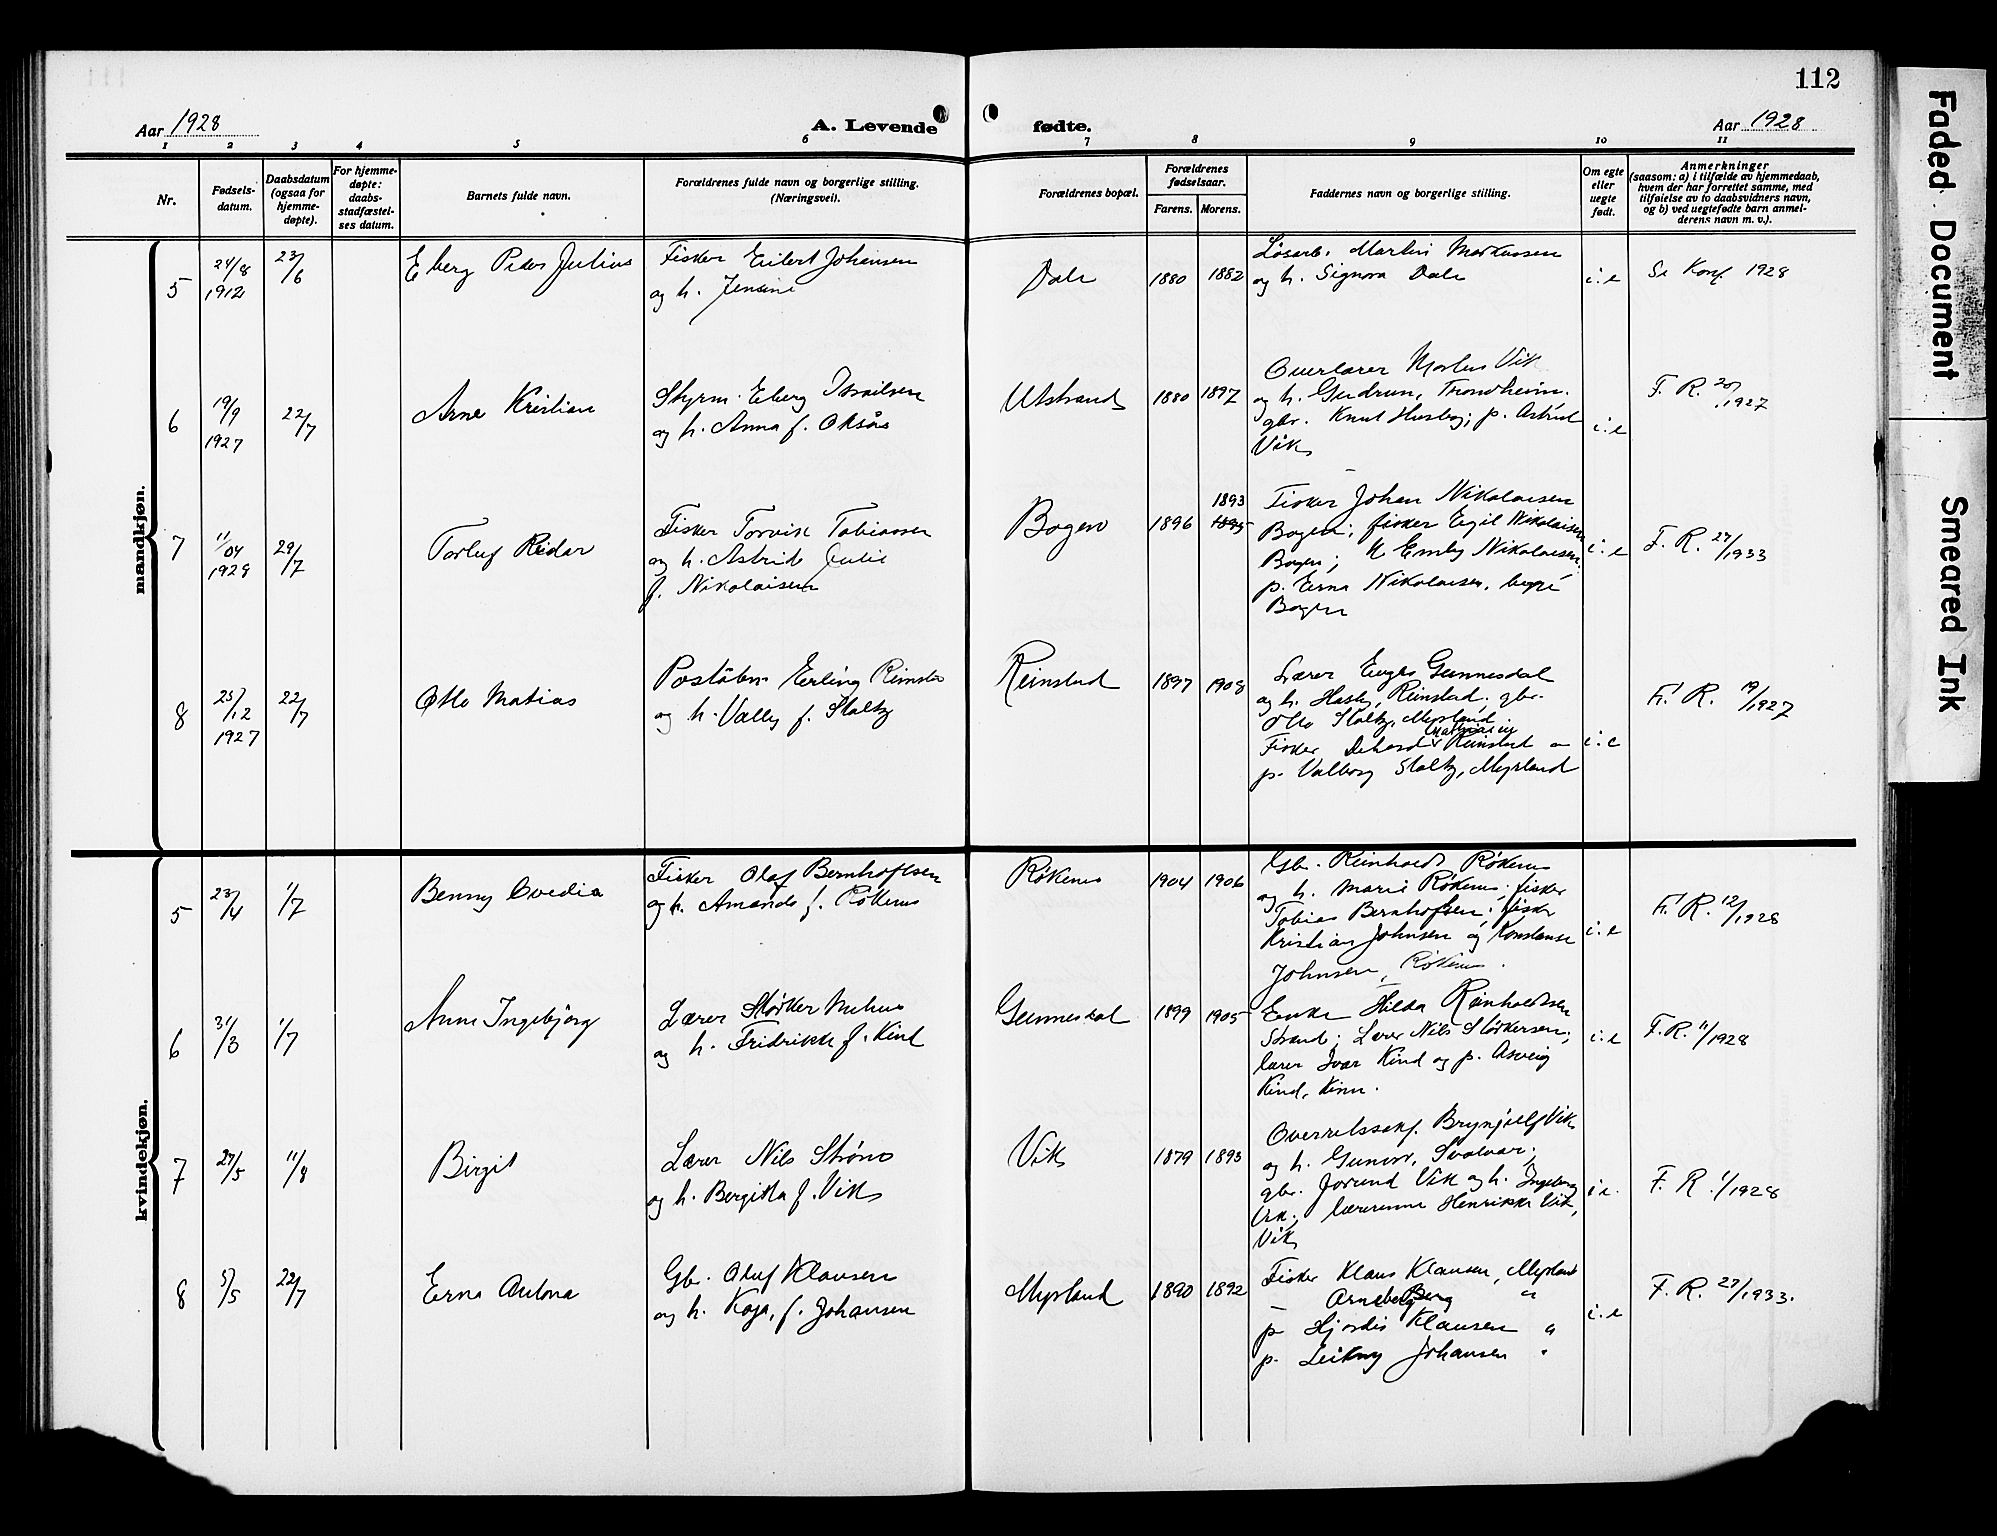 112
Aar 1928
A. Levende fødte.
Aar 1928
1 2 3 4 5 6 7 8 9 10 11
Nr.
Fødsels-
datum.
Daabsdatum
(ogsaa for
hjemme-
døpte).
For hjemme-
døpte:
daabs-
stadfæstel-
ses datum.
Barnets fulde navn.
Forældrenes fulde navn og borgerlige stilling.
(Næringsvei).
Forældrenes bopæl.
Forældrenes
fødselsaar.
Farens. Morens.
Faddernes navn og borgerlige stilling.
Om egte
eller
uegte
født.
Anmerkninger
(saasom: a) i tilfælde av hjemmedaab,
hvem der har forrettet samme, med
tilføielse av to daabsvidners navn,
og b) ved uegtefødte barn anmel-
derens navn m. v.).
mandkjøn.
5
24/8
1912
23/6
Eberg Peder Julius
Fisker Eilert Johansen
og h. Jensine
Dale
1880 1882
Løsarb. Martin Markussen
og h. Signora Dale
i.e
Se Konf. 1928
6
19/9
1927
22/7
Arne Kristian
Styrm. Eberg Israelsen
og h. Anna f. Oksås
Utstrand
1880 1897
Overlærer Morten Vik
og h. Gudrun, Trondheim.
gbr. Knut Husby; p. Astrid
Vik
i.e
F. R. 20/ 1927
7
11/04
1928
29/7
Torluf Reidar
Fisker Torvik Tobiassen
og h. Astrid Julie
f. Nikolaisen
Bogen
1896 1893
1895
Fisker Johan Nikolaisen
Bogen; fisker Egil Nikolaisen
Bogen; Emly Nikolaisen.
p. Erna Nikolaisen,
Bogen
i.e
F. R. 27/1933
8
25/12
1927
22/7
Otto Matias
Poståbn. Erling Reinstad
og h. Vally f. Stoltz
Reinstad
1897 1908
Lærer Gunnesdal
og h. Reinstad; gbr.
Otto Stoltz, Myrland
Fisker Reinstad
p. Valborg Stoltz, Myrland
i.e
F. R. 19/1927
kvindekjøn.
5
23/4
1/7
Benny Ovedia
Fisker Olaf Bernhoftsen
og h. Amanda f. Røkenes
Røkenes
1904 1906
Gbr. Reinholdt Røkenes
og h. Marie Røkenes; fisker
Tobias Bernhoftsen; fisker
Kristian Johnsen og Konstanse
Johnsen, Røkenes.
i.e
F. R. 12/1928
6
31/3
1/7
Anne Ingebjørg
Lærer Størker Mehus
og h. Fridrikke f. Kind
Gunnesdal
1899 1905
Enke Hilda Reinholdtsen
Strand; Lærer Nils Størkersen;
lærer Ivar Kind og p. Asveig
Kind, Kinn.
i.e
F. R. 11/1928
7
27/5
11/8
Birgit
Lærer Nils Strøno
og h. Bergitta f. Vik
Vik
1879 1893
Overretssakf. Brynjulf Vik
og h. Gunvor, Svolvær;
gbr. Jorund Vik og h. Ingeborg
Vik; lærerinne Henrikke Vik,
Vik
i.e.
F. R. 1/1928
8
5/5
22/7
Erna Antona
Gbr. Oluf Klausen
og h. Kaja, f. Johansen
Myrland
1890 1892
Fisker Klaus Klausen, Myrland
— Arneberg Berg "
p. Hjordis Klausen "
p. Leikny Johansen "
i.e
F. R. 27/1933.
Faded Document
Smeared Ink